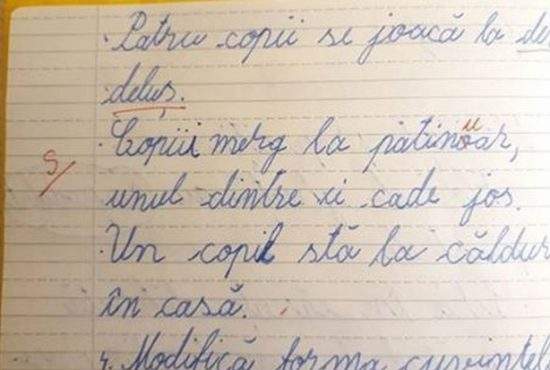 · Patru copii se joacă la de
deluș.
· Copiii merg la patinoar,
unul dintre ei cade jos.
· Un copil stă la căldur
în casă.
4. Modifică forma cuvintel